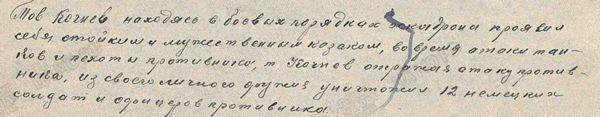 Тов Кочнев находясь в боевых порядках эскадрона проявил
себя стойким и мужественним казаком, во время атаки тан-
ков и пехоты противника, т Кочнев отражая атаку против-
ника, из своего личного оружия уничтожил 12 немецких
солдат и офицеров противника.